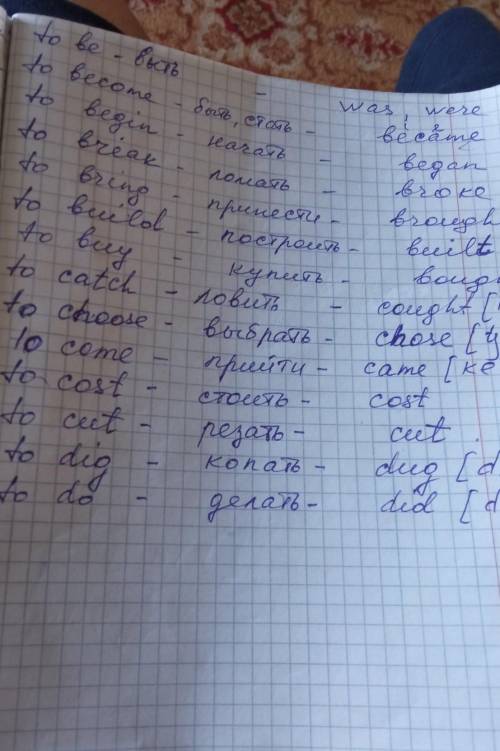 to be - быть - was, were
to become - быть, стать - became
to begin - начать - began
to break - ломать - broke
to bring - принести - brough
to build - построить - built
to buy - купить - bough
to catch - ловить - cought [
to choose - выбрать - chose [
to come - прийти - came [ке
to cost - стоить - cost
to cut - резать - cut
to dig - копать - dug [d
to do - делать - did [d